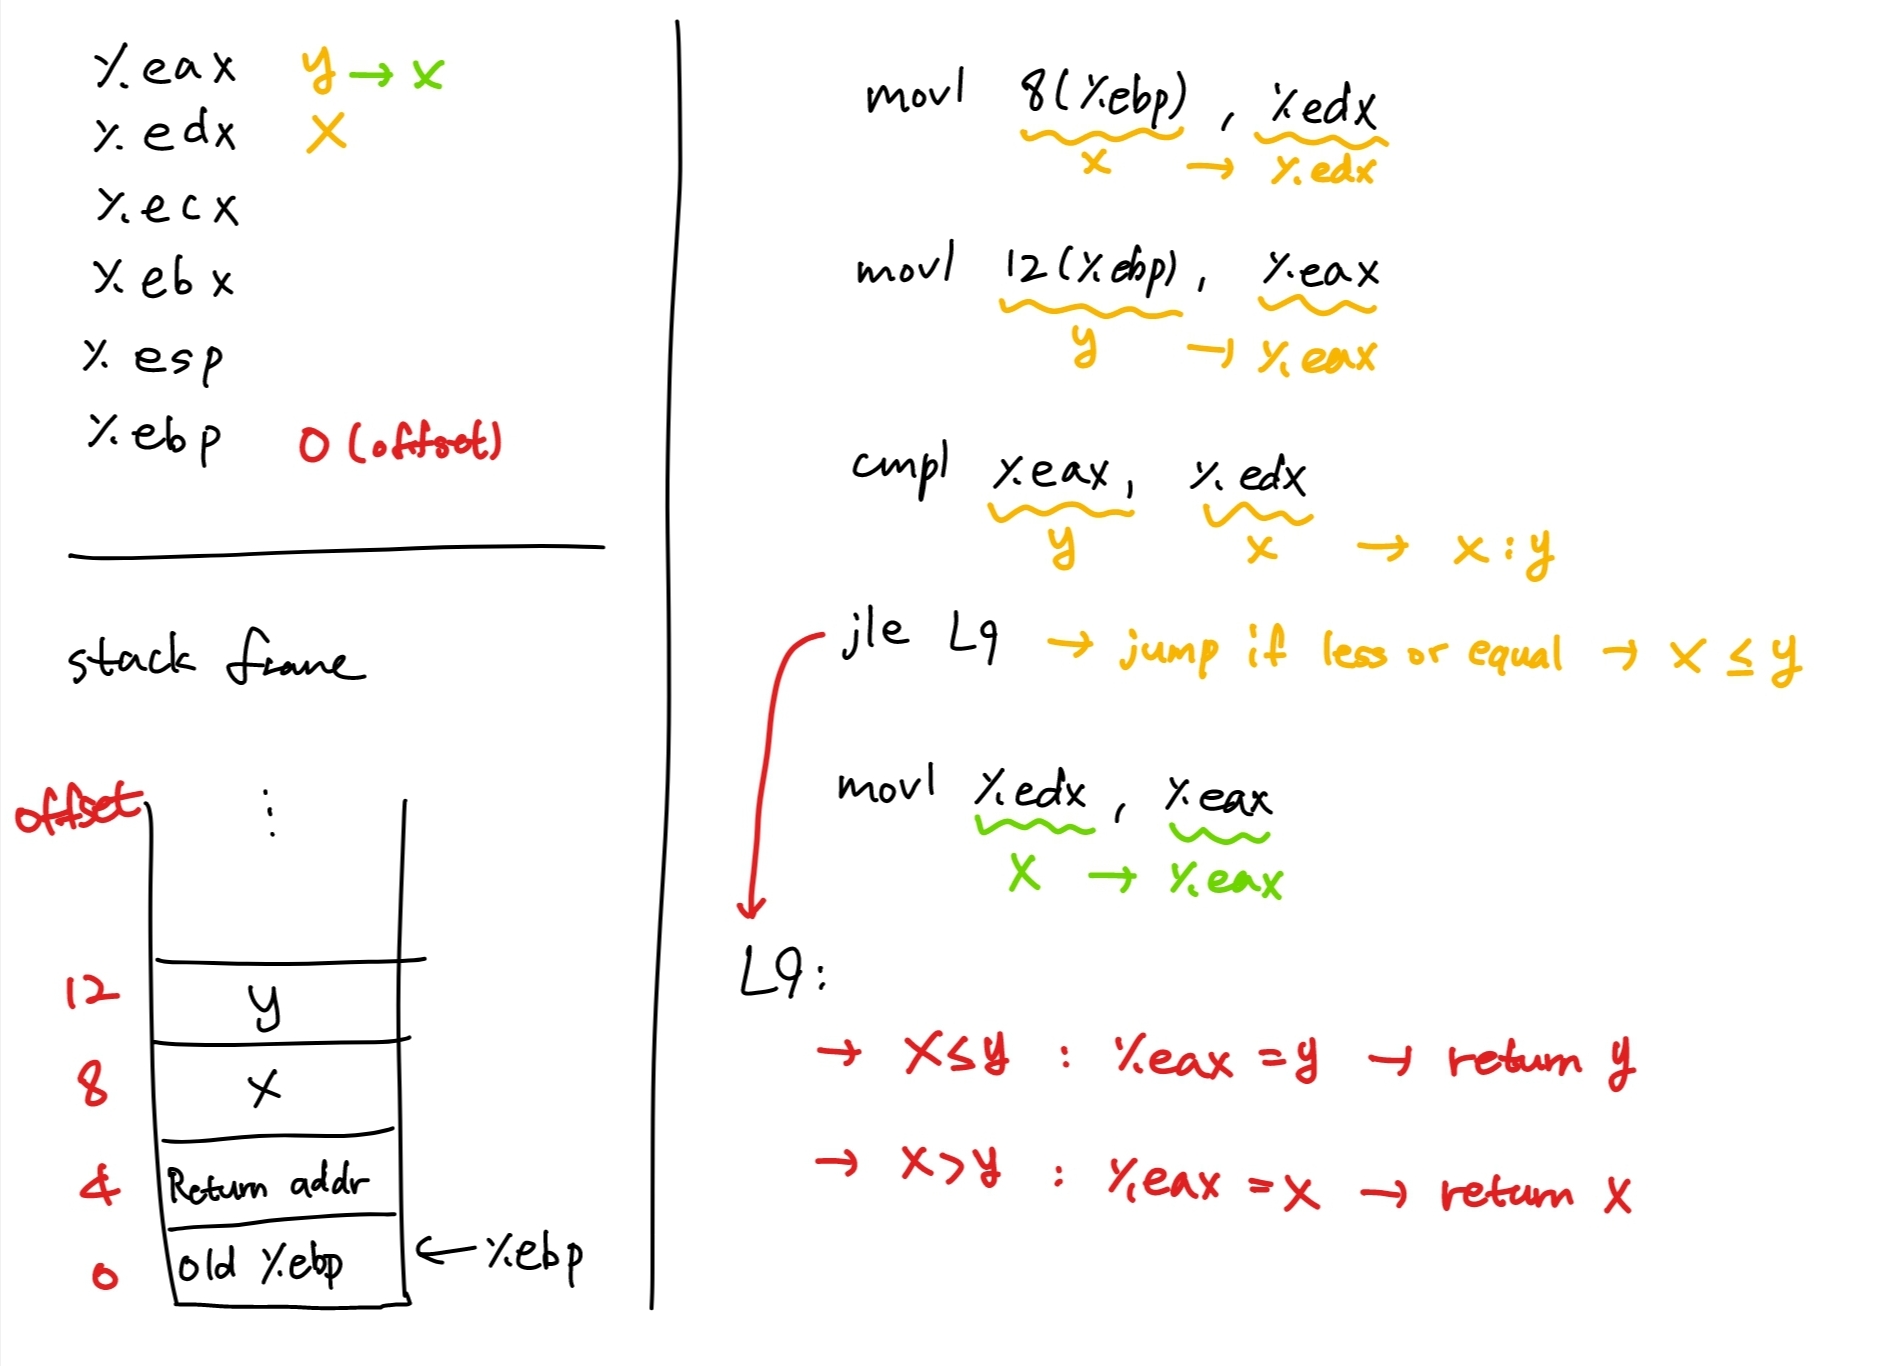 %eax y → x
%edx x
%ecx
%ebx
%esp
%ebp 0 (offset)
stack frame
offset
⋮
12 y
8 x
4 Return addr
0 old %ebp ← %ebp
movl 8(%ebp), %edx
x → %edx
movl 12(%ebp), %eax
y → %eax
cmpl %eax, %edx
y x → x : y
jle L9 → jump if less or equal → x ≤ y
movl %edx, %eax
x → %eax
L9:
→ x ≤ y : %eax = y → return y
→ x > y : %eax = x → return x